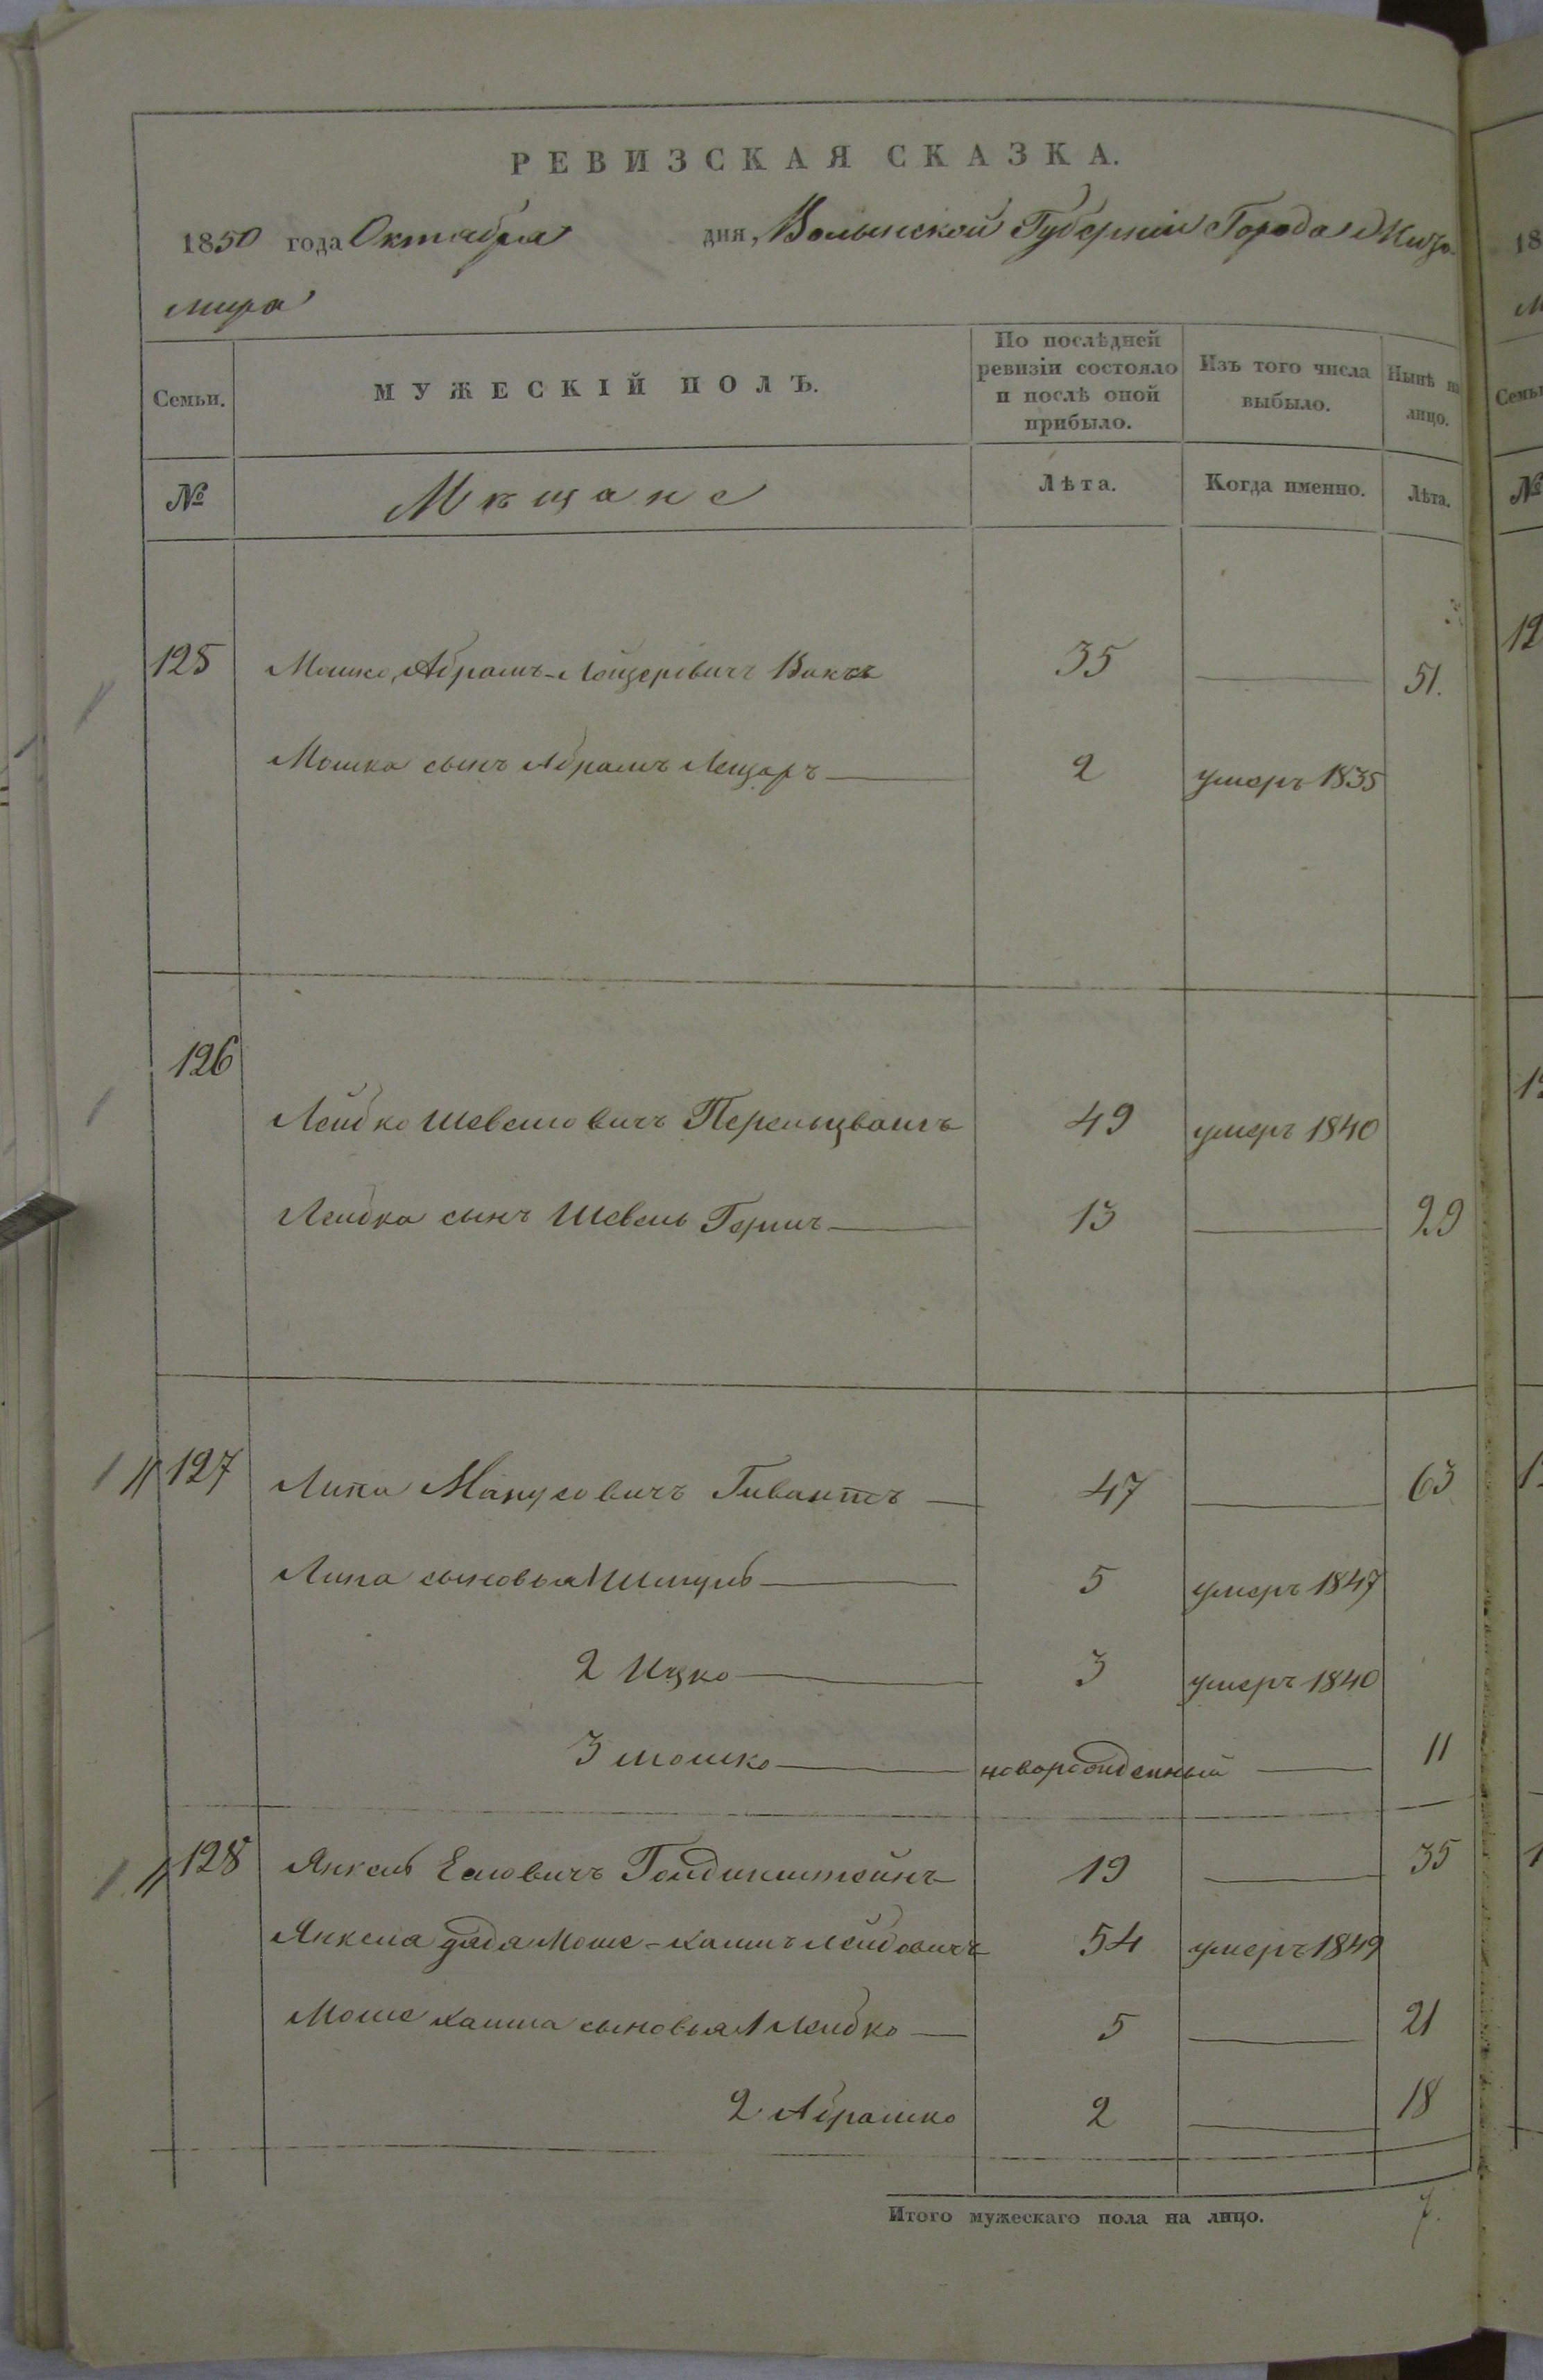 РЕВИЗСКАЯ СКАЗКА.
1850 года Октября дня, Волынской Губернии Города Жито-
мира
Семьи. МУЖЕСКІЙ ПОЛЪ. По послѣдней ревизіи состояло и послѣ оной прибыло. Изъ того числа выбыло. Нынѣ на лицо.
№ Мѣщане Лѣта. Когда именно. Лѣта.
125 Мошко Абрамъ-Лейзеровичъ 35 51.
Мошка сынъ Абрамъ Лейзаръ 2 умеръ 1835
126
Лейбко Шевелевичъ Перельцвайгъ 49 умеръ 1840
Лейбка сынъ Шевель Гершъ 13 29
127 Липа Манусовичъ Гивантъ 47 63
Липа сыновья 1 Шмуль 5 умеръ 1847
2 Ицко 3 умеръ 1840
3 Мошко новорожденный 11
128 Янкель Голдинштейнъ 19 35
Янкеля дядя Моше-Хаимъ Лейбовичъ 54 умеръ 1849
Моше Хаима сыновья 1 Лейбко 5 21
2 Абрашко 2 18
Итого мужескаго пола на лицо. 7.
18
Семьи
№